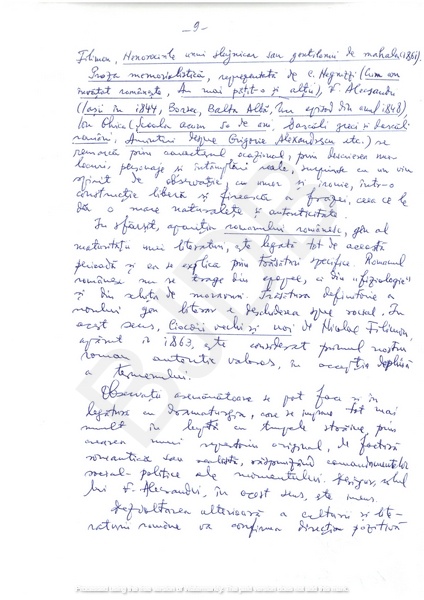 - 9 -
Filimon, Nenorocirile unui slujnicar sau gentilomii de mahala (1861).
Proza memorialistică, reprezentată de C. Negruzzi (Cum am
învățat românește, Au mai pățit-o și alții), V. Alecsandri
(Iași în 1844, Borsec, Balta Albă, Un episod din anul 1848),
Ion Ghica (Școala acum 50 de ani, Dascăli greci și dascăli
români, Amintiri despre Grigore Alexandrescu etc.) se
remarcă prin caracterul ocazional, prin descrierea unor
locuri, personaje și întâmplări reale, surprinse cu un viu
spirit de observație, cu umor și ironie, într-o
construcție liberă și firească a frazei, ceea ce le
dă o mare naturalețe și autenticitate.
În sfârșit, apariția romanului românesc, gen al
maturității unei literaturi, este legată tot de această
perioadă și ea se explică prin trăsături specifice. Romanul
românesc nu se trage din epopee, ci din „fiziologie"
și din schița de moravuri. Trăsătura definitorie a
noului gen literar e deschiderea spre social. În
acest sens, Ciocoii vechi și noi de Nicolae Filimon,
apărut în 1863, este considerat primul nostru
roman autentic valoros, în accepția deplină
a termenului.
Observații asemănătoare se pot face și în
legătură cu dramaturgia, care se impune tot mai
mult în luptă cu trupele străine, prin
crearea unui repertoriu original, de factură
romantică sau realistă, răspunzând comandamentelor
social-politice ale momentului. Desigur, rolul
lui V. Alecsandri, în acest sens, este imens.
Dezvoltarea ulterioară a culturii și lite-
raturii române va confirma direcția pozitivă
BUPRB